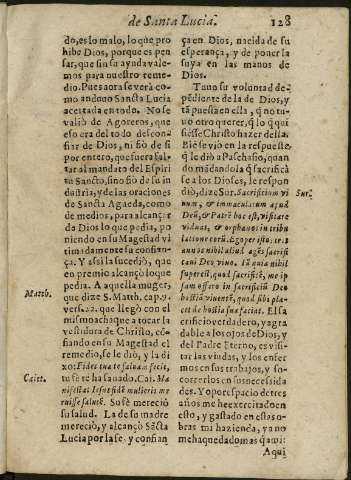 de Santa Lucia.
128
do, es lo malo, lo que pro
hibe Dios, porque es pen
sar, que sin su ayuda vale-
mos para nuestro reme-
dio. Pues aora se verà co-
mo anduuo Sancta Lucia
acertada en todo. No se
valiò de Agoreros, que
eso era del todo descon-
fiar de Dios, ni fiò de si
por entero, que fuera fal-
tar al mandato del Espiri
tu Sancto, sino fiò de su in
dustria, y de las oraciones
de Sancta Agaeda, como
de medios, para alcançar
de Dios lo que pedia, po
niendo en su Magestad vl
timadamente su confian-
ça. Y assi la sucediò, que
en premio alcançò lo que
pedia. A aquella muger,
que dize S. Matth. cap. 9.
vers. 22. que llegò con el
mismo achaque a tocar la
vestidura de Christo, cõ-
fiando en su Magestad el
remedio, se le diò, y la di
xo: Fides tua te saluam fecit,
tu fè te ha sanado. Cai. Ma
nifestat Iesus fidẽ mulieris me
ruisse salutẽ. Su fè mereciò
su salud. La de su madre
mereciò, y alcançò Sãcta
Lucia por la fe, y confian
Matth.
Caiet.
ça en Dios, nacida de su
esperança, y de poner la
suya en las manos de
Dios.
Tuuo su voluntad de-
pẽdiente de la de Dios, y
tã puesta en ella, q̃ no tu-
uo otro querer, q̃ lo q̃ qui
siesse Christo hazer della.
Biẽ se viò en la respuesta
q̃ le diò a Paschasio, quan
do mãdandola q̃ sacrificà
se a los Dioses, le respon
diò, dize Sur. Sacrificium vi
uum, & immaculatum apud
Deũ, & Patrẽ hoc est, visitare
viduas, & orphanos in tribu
latione eorũ. Ego per istos tres
annos nihil aliud egi, sacrifi
cani Deo viuo. Iã quia nihil
superest, quod sacrificẽ, me ip
sam offero in sacrificiũ Deo
hostiã viuentẽ, quod sibi pla-
cet de hostia sua faciat. El sa
crificio verdadero, y agra
dable a los ojos de Dios, y
del Padre Eterno, es visi-
tar las viudas, y los enfer
mos en sus trabajos, y so-
correrlos en sus necessida
des. Yo por espacio de tres
años me he exercitado en
esto, y gastado en estas o-
bras mi hazienda, y ya no
me ha quedado mas q̃ a mi:
Sur.
Aqui